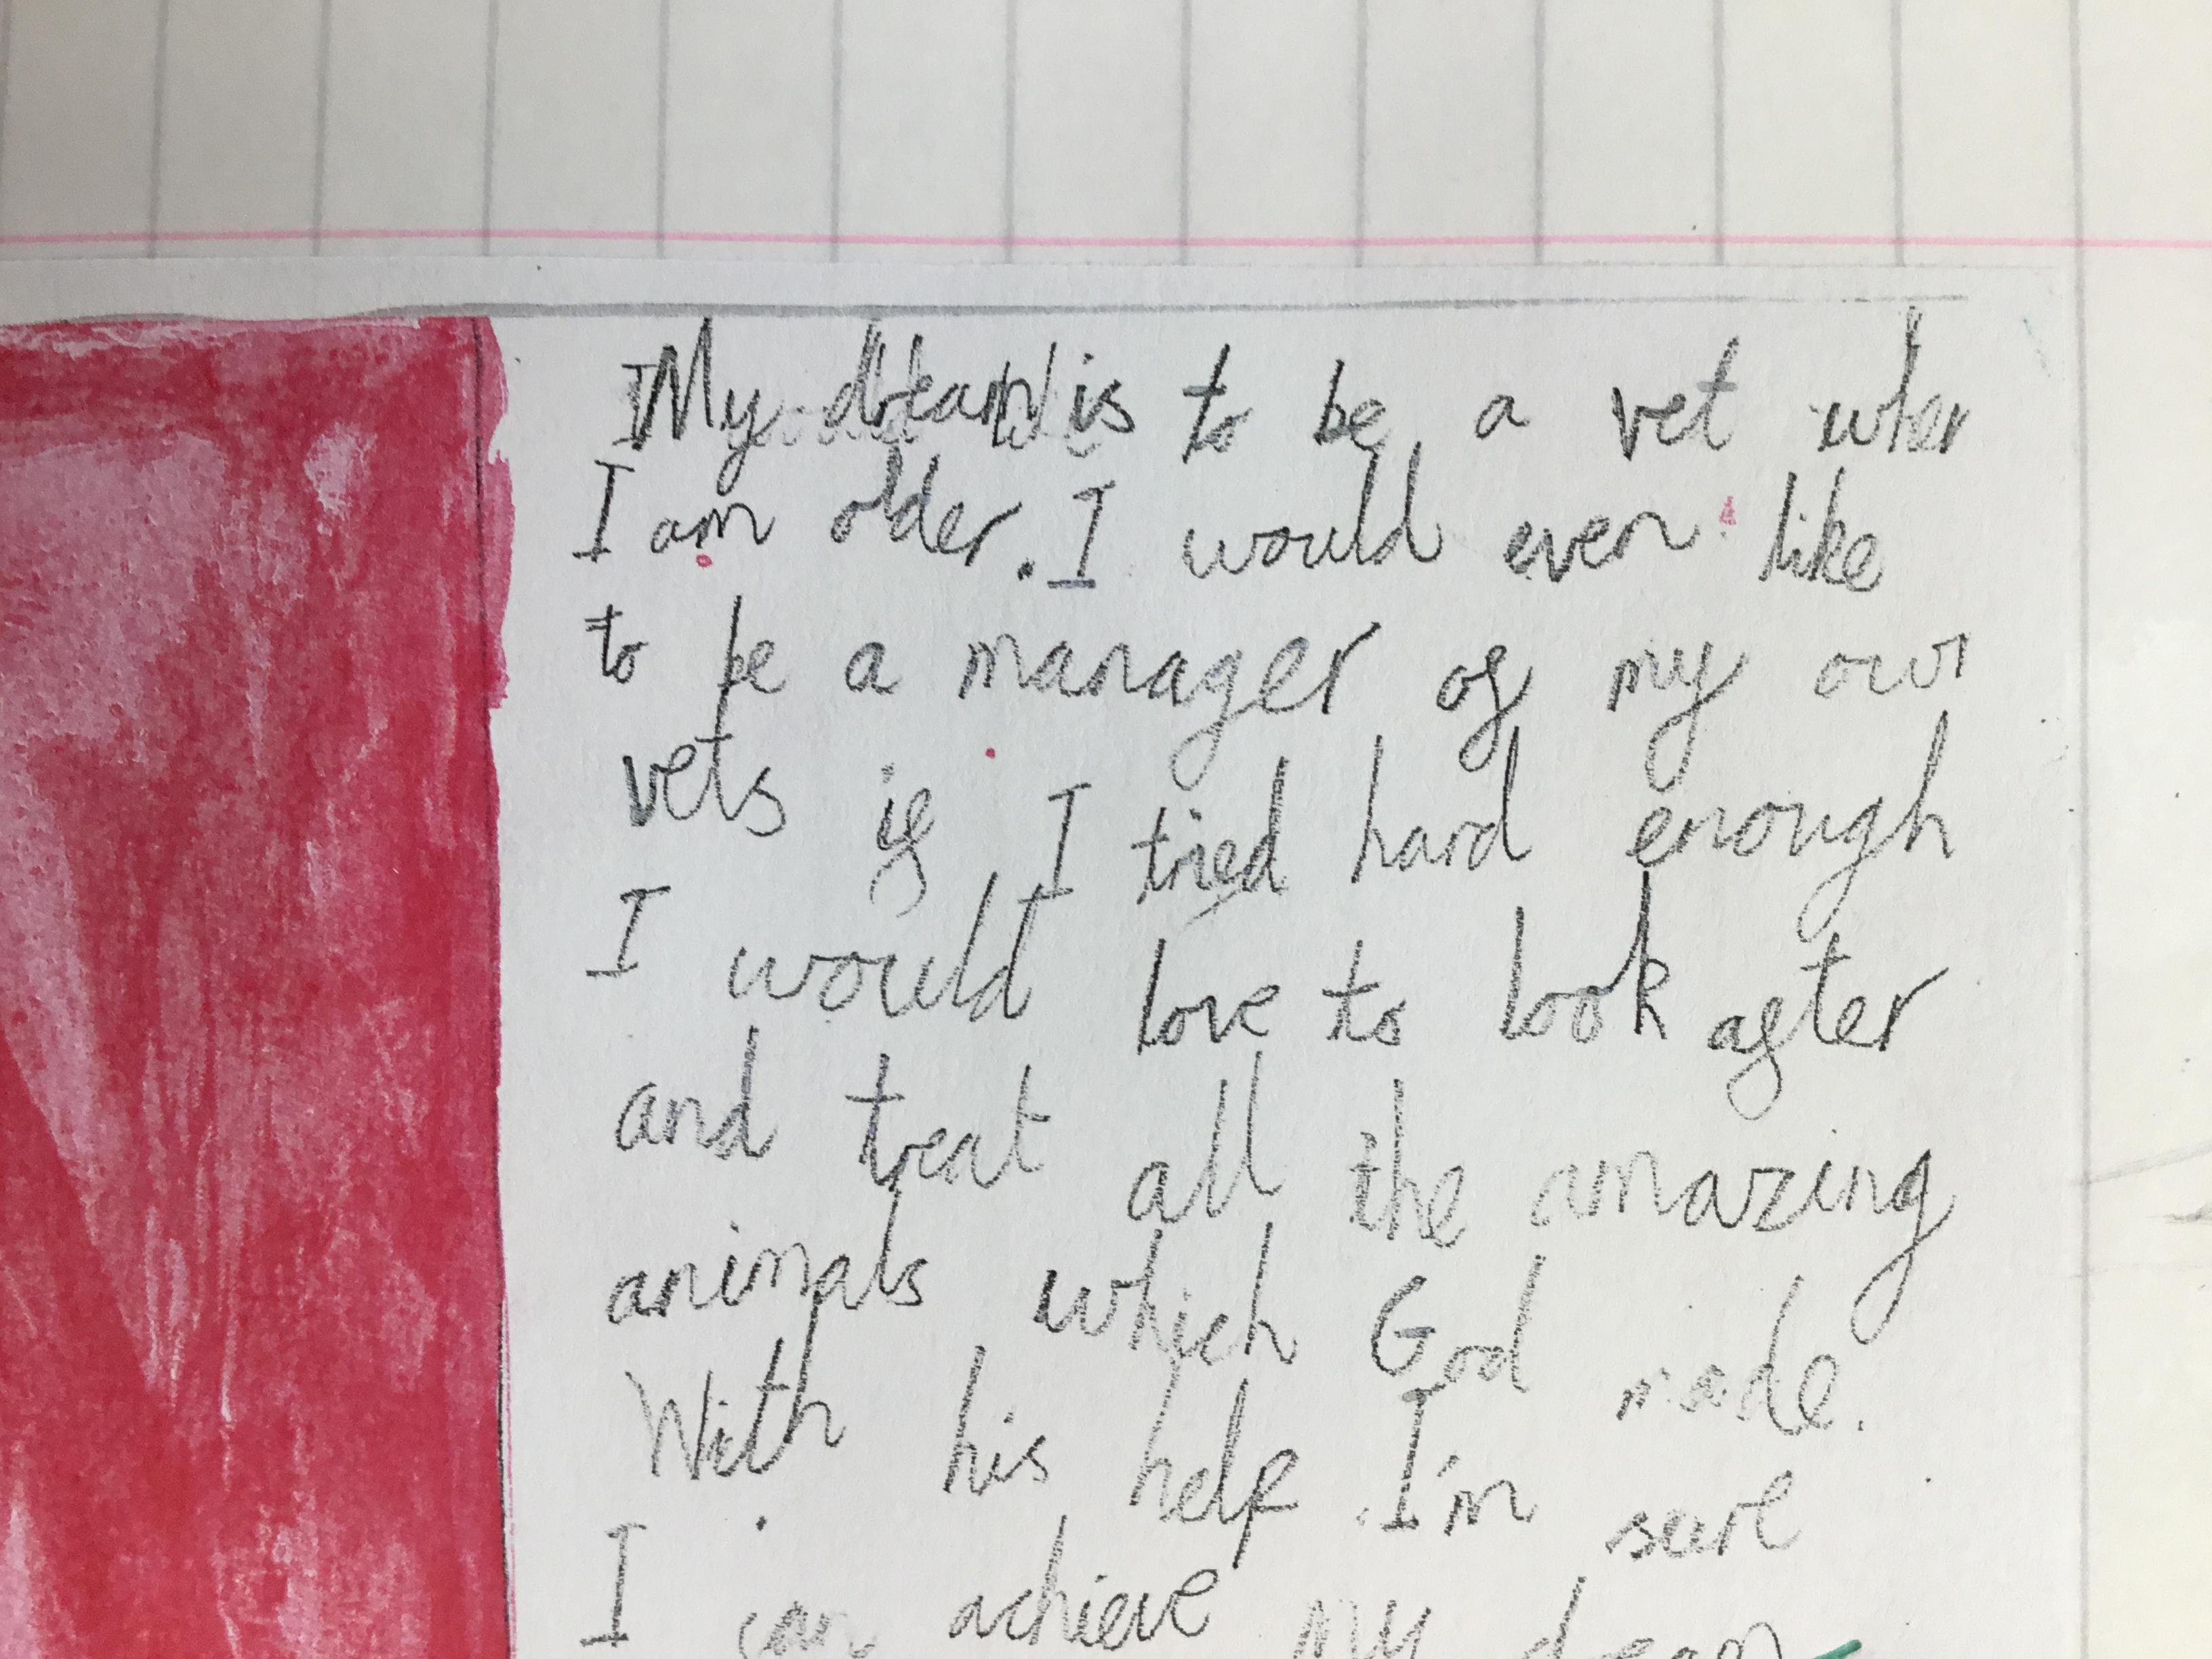 My dream is to be a vet when
I am older. I would even like
to be a manager of my own
vets if I tried hard enough
I would love to look after
and treat all the amazing
animals which God made.
With his help I'm sure
I can achieve my dream